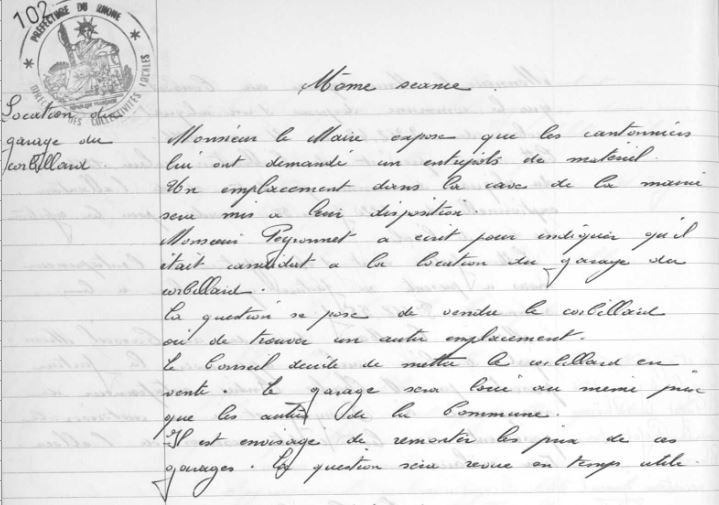 102
PRÉFECTURE DU RHÔNE
COLLECTIVITÉS LOCALES
Même séance.
Location du
garage du
corbillard
Monsieur le Maire expose que les cantonniers
lui ont demandé un entrepôts de matériel.
Un emplacement dans la cave de la mairie
sera mis à leur disposition.
Monsieur Peyronnet a écrit pour indiquer qu'il
était candidat a la location du garage du
corbillard.
La question se pose de vendre le corbillard
ou de trouver un autre emplacement.
Le Conseil décide de mettre le corbillard en
vente. Le garage sera loué au même prix
que les autres de la Commune.
Il est envisagé de remonter les prix de ces
garages. La question sera revue en temps utile.